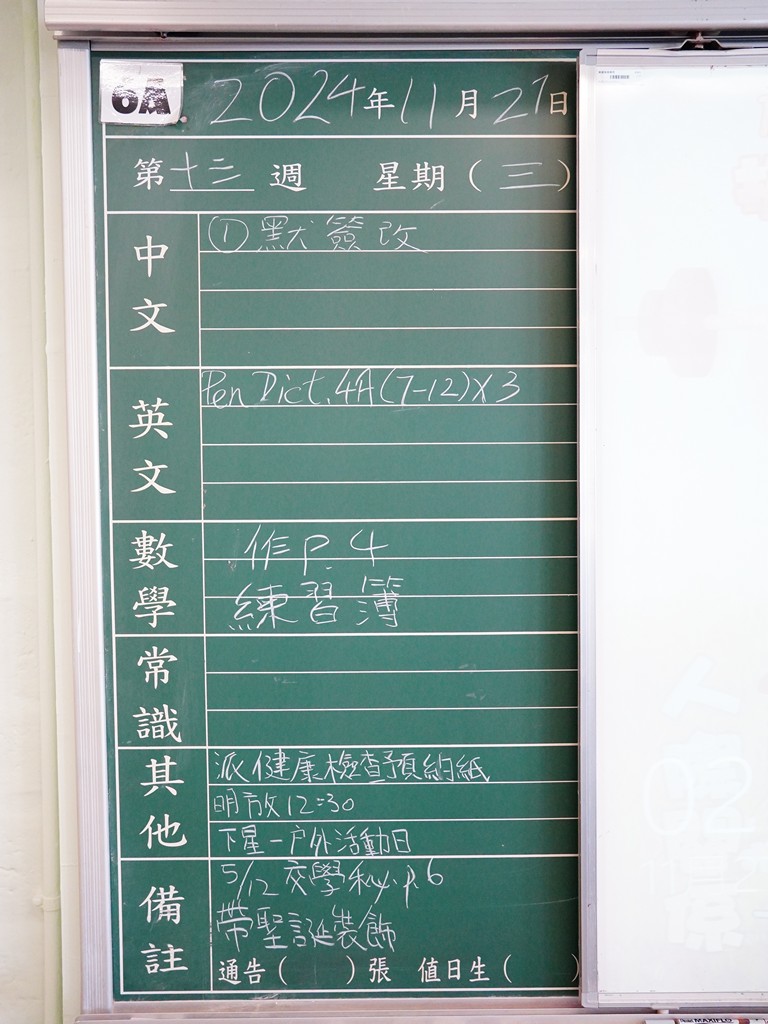 6A
2024年11月27日
第十三週 星期(三)
中文
①默簽改
英文
Pen Dict. 4A(7-12)x3
數學
作P.4
練習簿
常識
其他
派健康檢查預約紙
明放12:30
下星一戶外活動日
備註
5/12 交學秘.p.6
帶聖誕裝飾
通告( )張 值日生( )